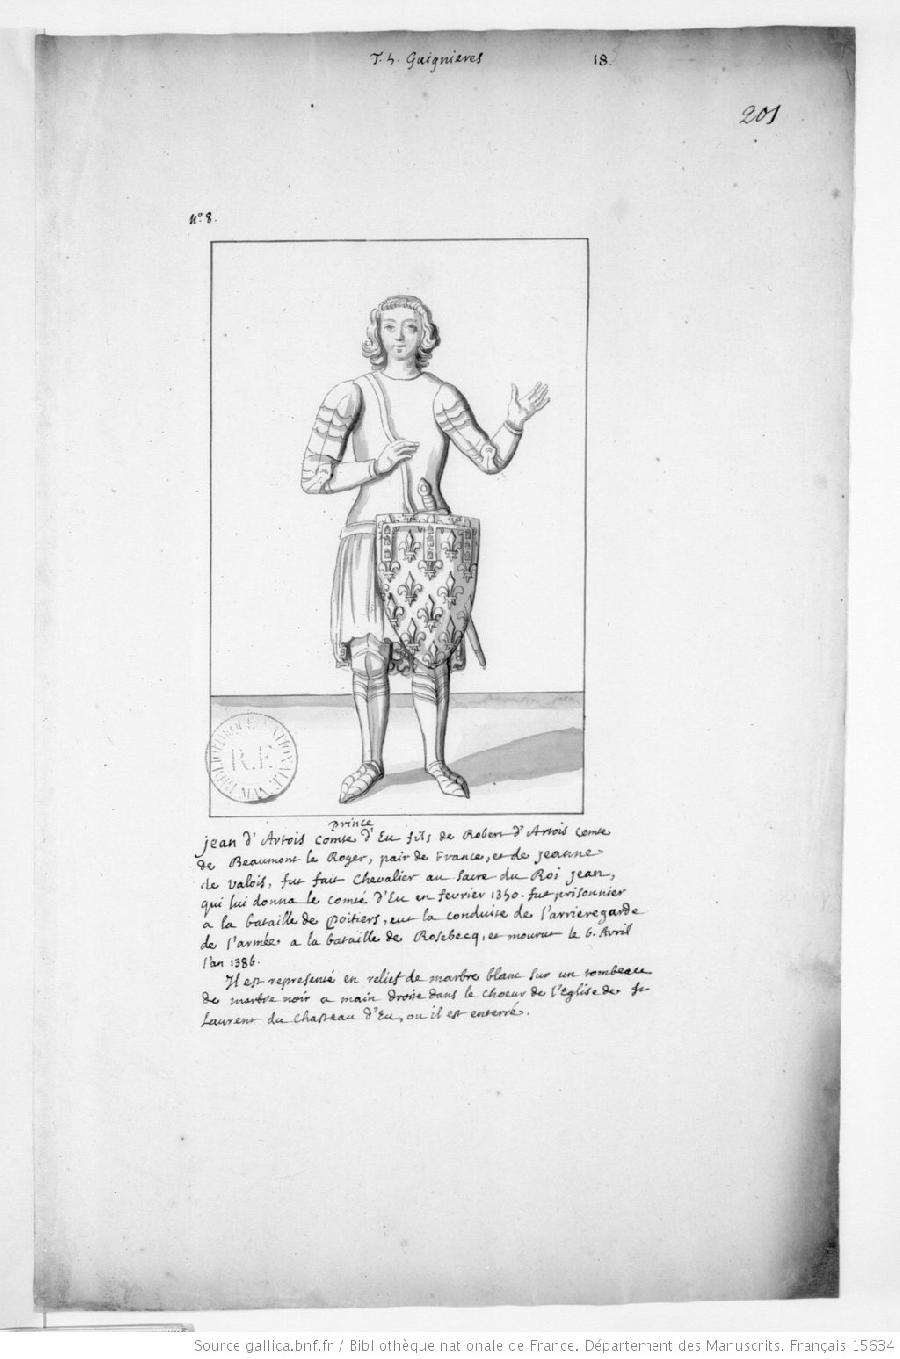 T. 4. Gaignieres 18.
201
N.º 8.
BIBLIOTHEQUE NATIONALE MAN
R.F.
prince
jean d'Artois comte d'Eu fils de Robert d'Artois comte
de Beaumont le Roger, pair de France, et de jeanne
de valois, fut fait chevalier au sacre du Roi jean,
qui lui donna le comté d'Eu en fevrier 1350. fut prisonnier
a la bataille de Poitiers, eut la conduite de l'arrieregarde
de l'armée a la bataille de Rosebecq, et mourut le 6. Avril
l'an 1386.
Il est representé en relief de marbre blanc sur un tombeau
de marbre noir a main droite dans le choeur de l'Eglise de St
Laurent du Chasteau d'Eu, ou il est enterré.
Source gallica.bnf.fr / Bibliothèque nationale de France. Département des Manuscrits. Français 15634